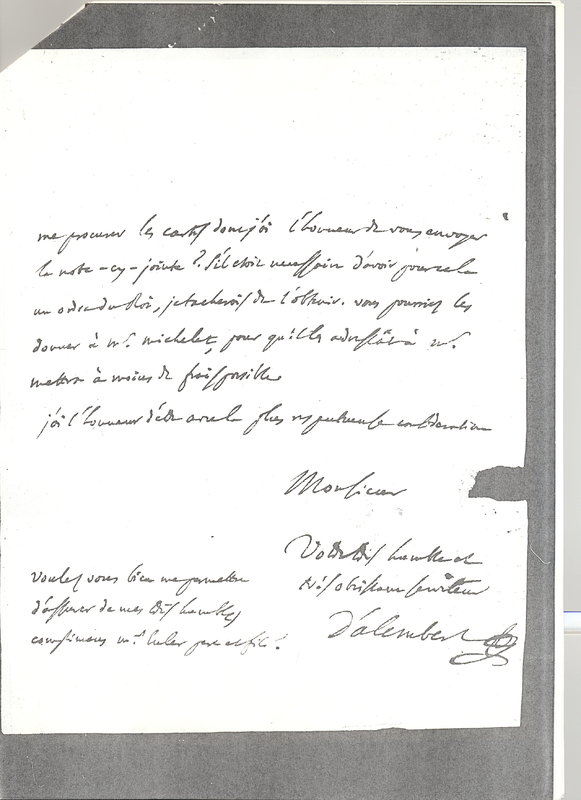 me procurer les cartes dont j'ai l'honneur de vous envoyer
la note-cy-jointe? S'il étoit necessaire d'avoir pour cela
un ordre du Roi, je tacherois de l'obtenir. vous pourriez les
donner à mr. michelet, pour qu'il les adressât à mr.
mettra à moins de frais possible
j'ai l'honneur d'être avec la plus respectueuse consideration
Monsieur
Votre très humble et
très obéissant serviteur
D'alembert
voulez vous bien me permettre
d'assurer de mes très humbles
complimens mrs. Euler pere et fils.